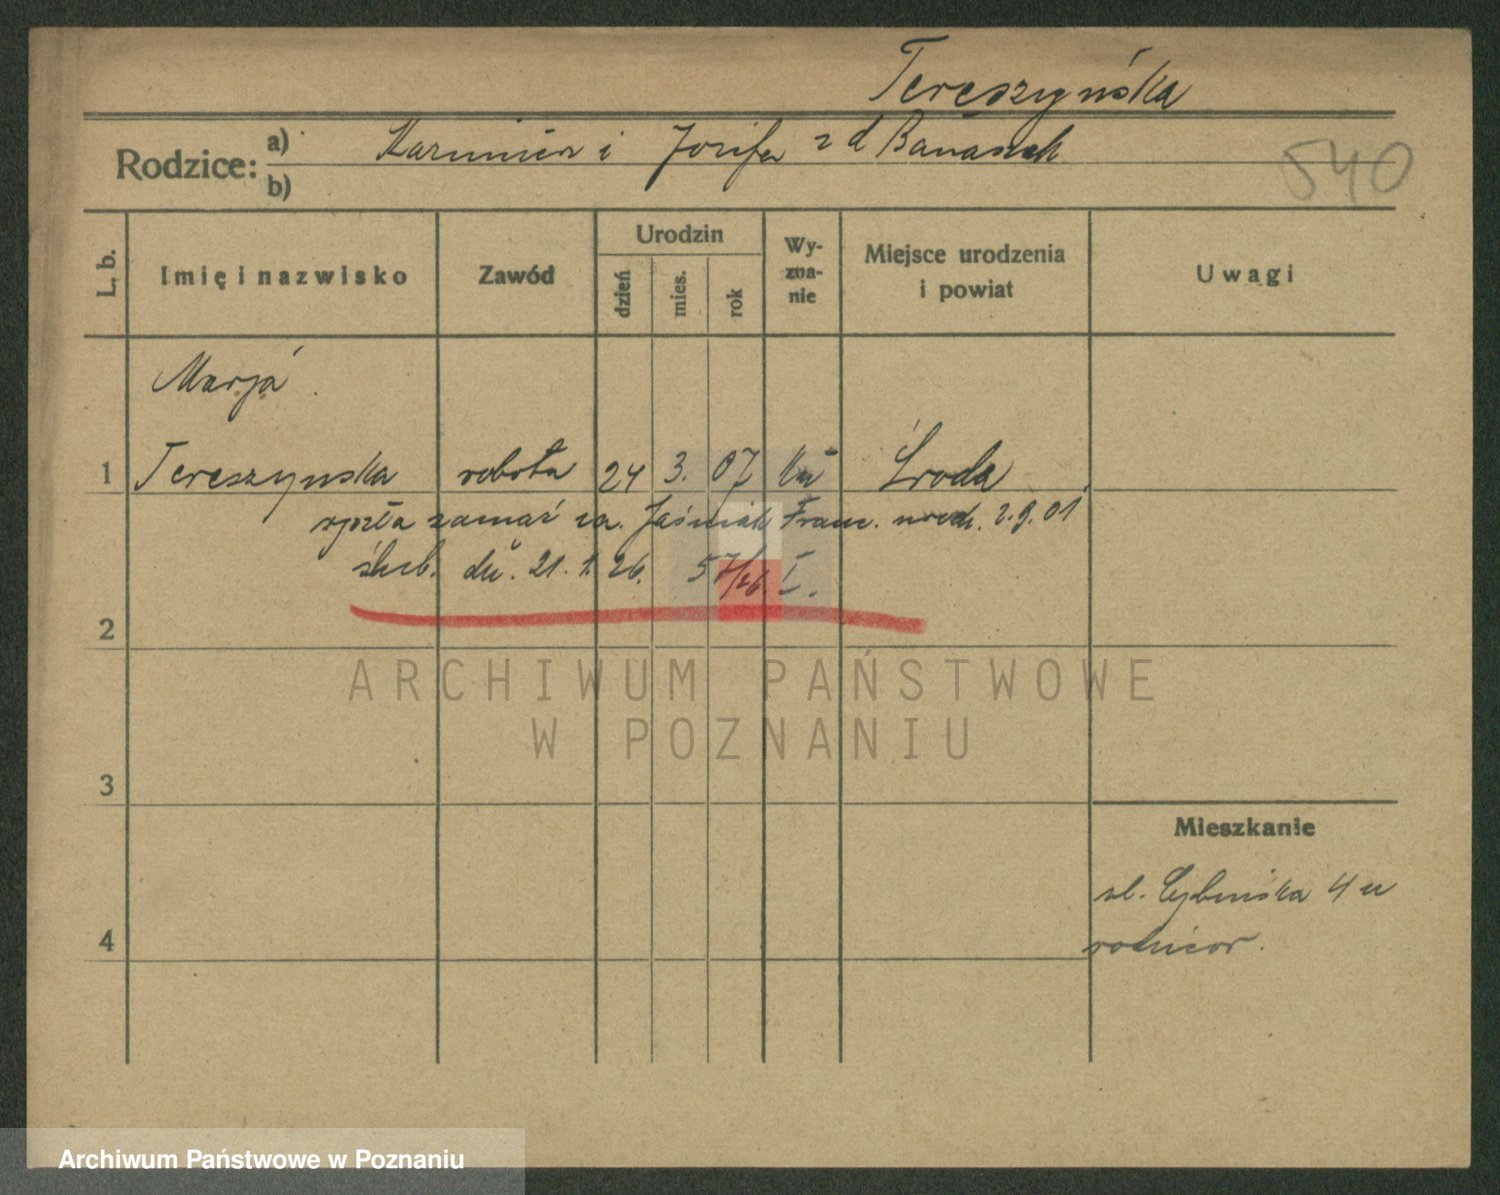 Tereszyńska
Rodzice: a) Kazimierz i Józefa z d Banaszak
b)
540
L. b.
Imię i nazwisko
Zawód
Urodzin
dzień
mies.
rok
Wy-
zna-
nie
Miejsce urodzenia
i powiat
Uwagi
Marja
1 Tereszynska robotn 24 3. 07 kat Środa
wyszła zamąż za. Jaśniak Franc. urodz. 2.9.01
ślub. dn. 21. 1. 26. 57/26 I.
2
ARCHIWUM PAŃSTWOWE
W POZNANIU
3
Mieszkanie
ul. Cybińska 4 u
rodziców.
4
Archiwum Państwowe w Poznaniu